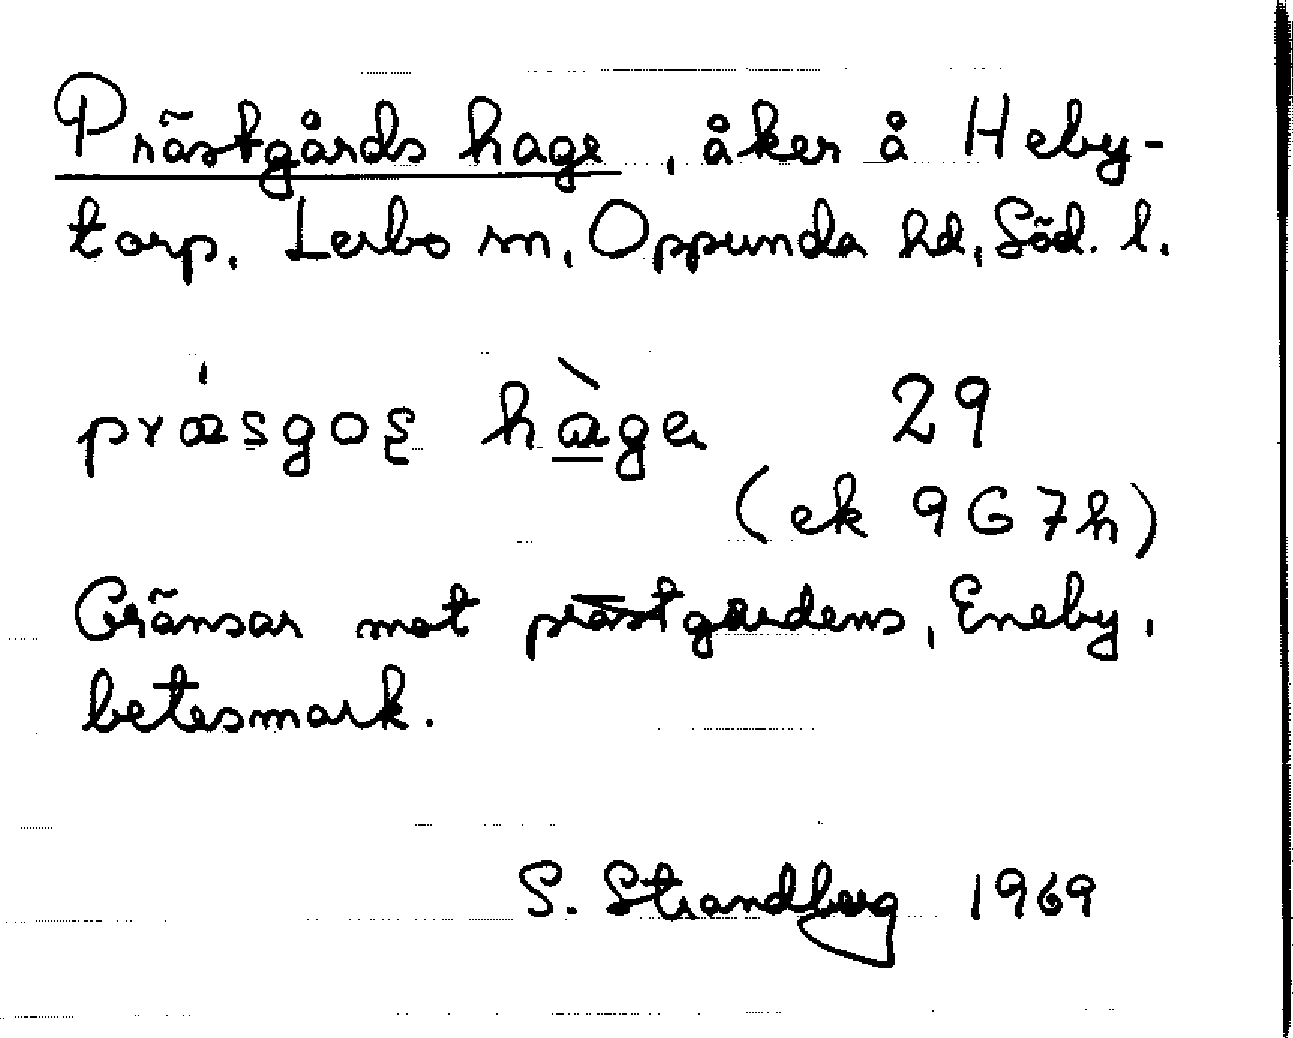 Prästgårds hage, åker å Heby-
torp, Lerbo sn, Oppunda hd, Söd. l.
prǽsgoʂ hàge 29
(ek 9G7h)
Gränsar mot prästgårdens, Eneby,
betesmark.
S. Strandberg 1969